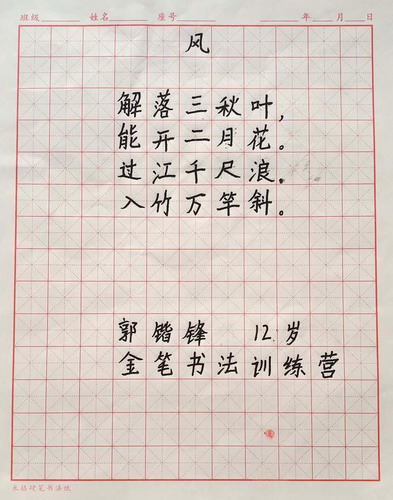 班级 姓名 座号 年 月 日
风
解落三秋叶,
能开二月花。
过江千尺浪。
入竹万竿斜。
郭锴锋 12岁
金笔书法训练营